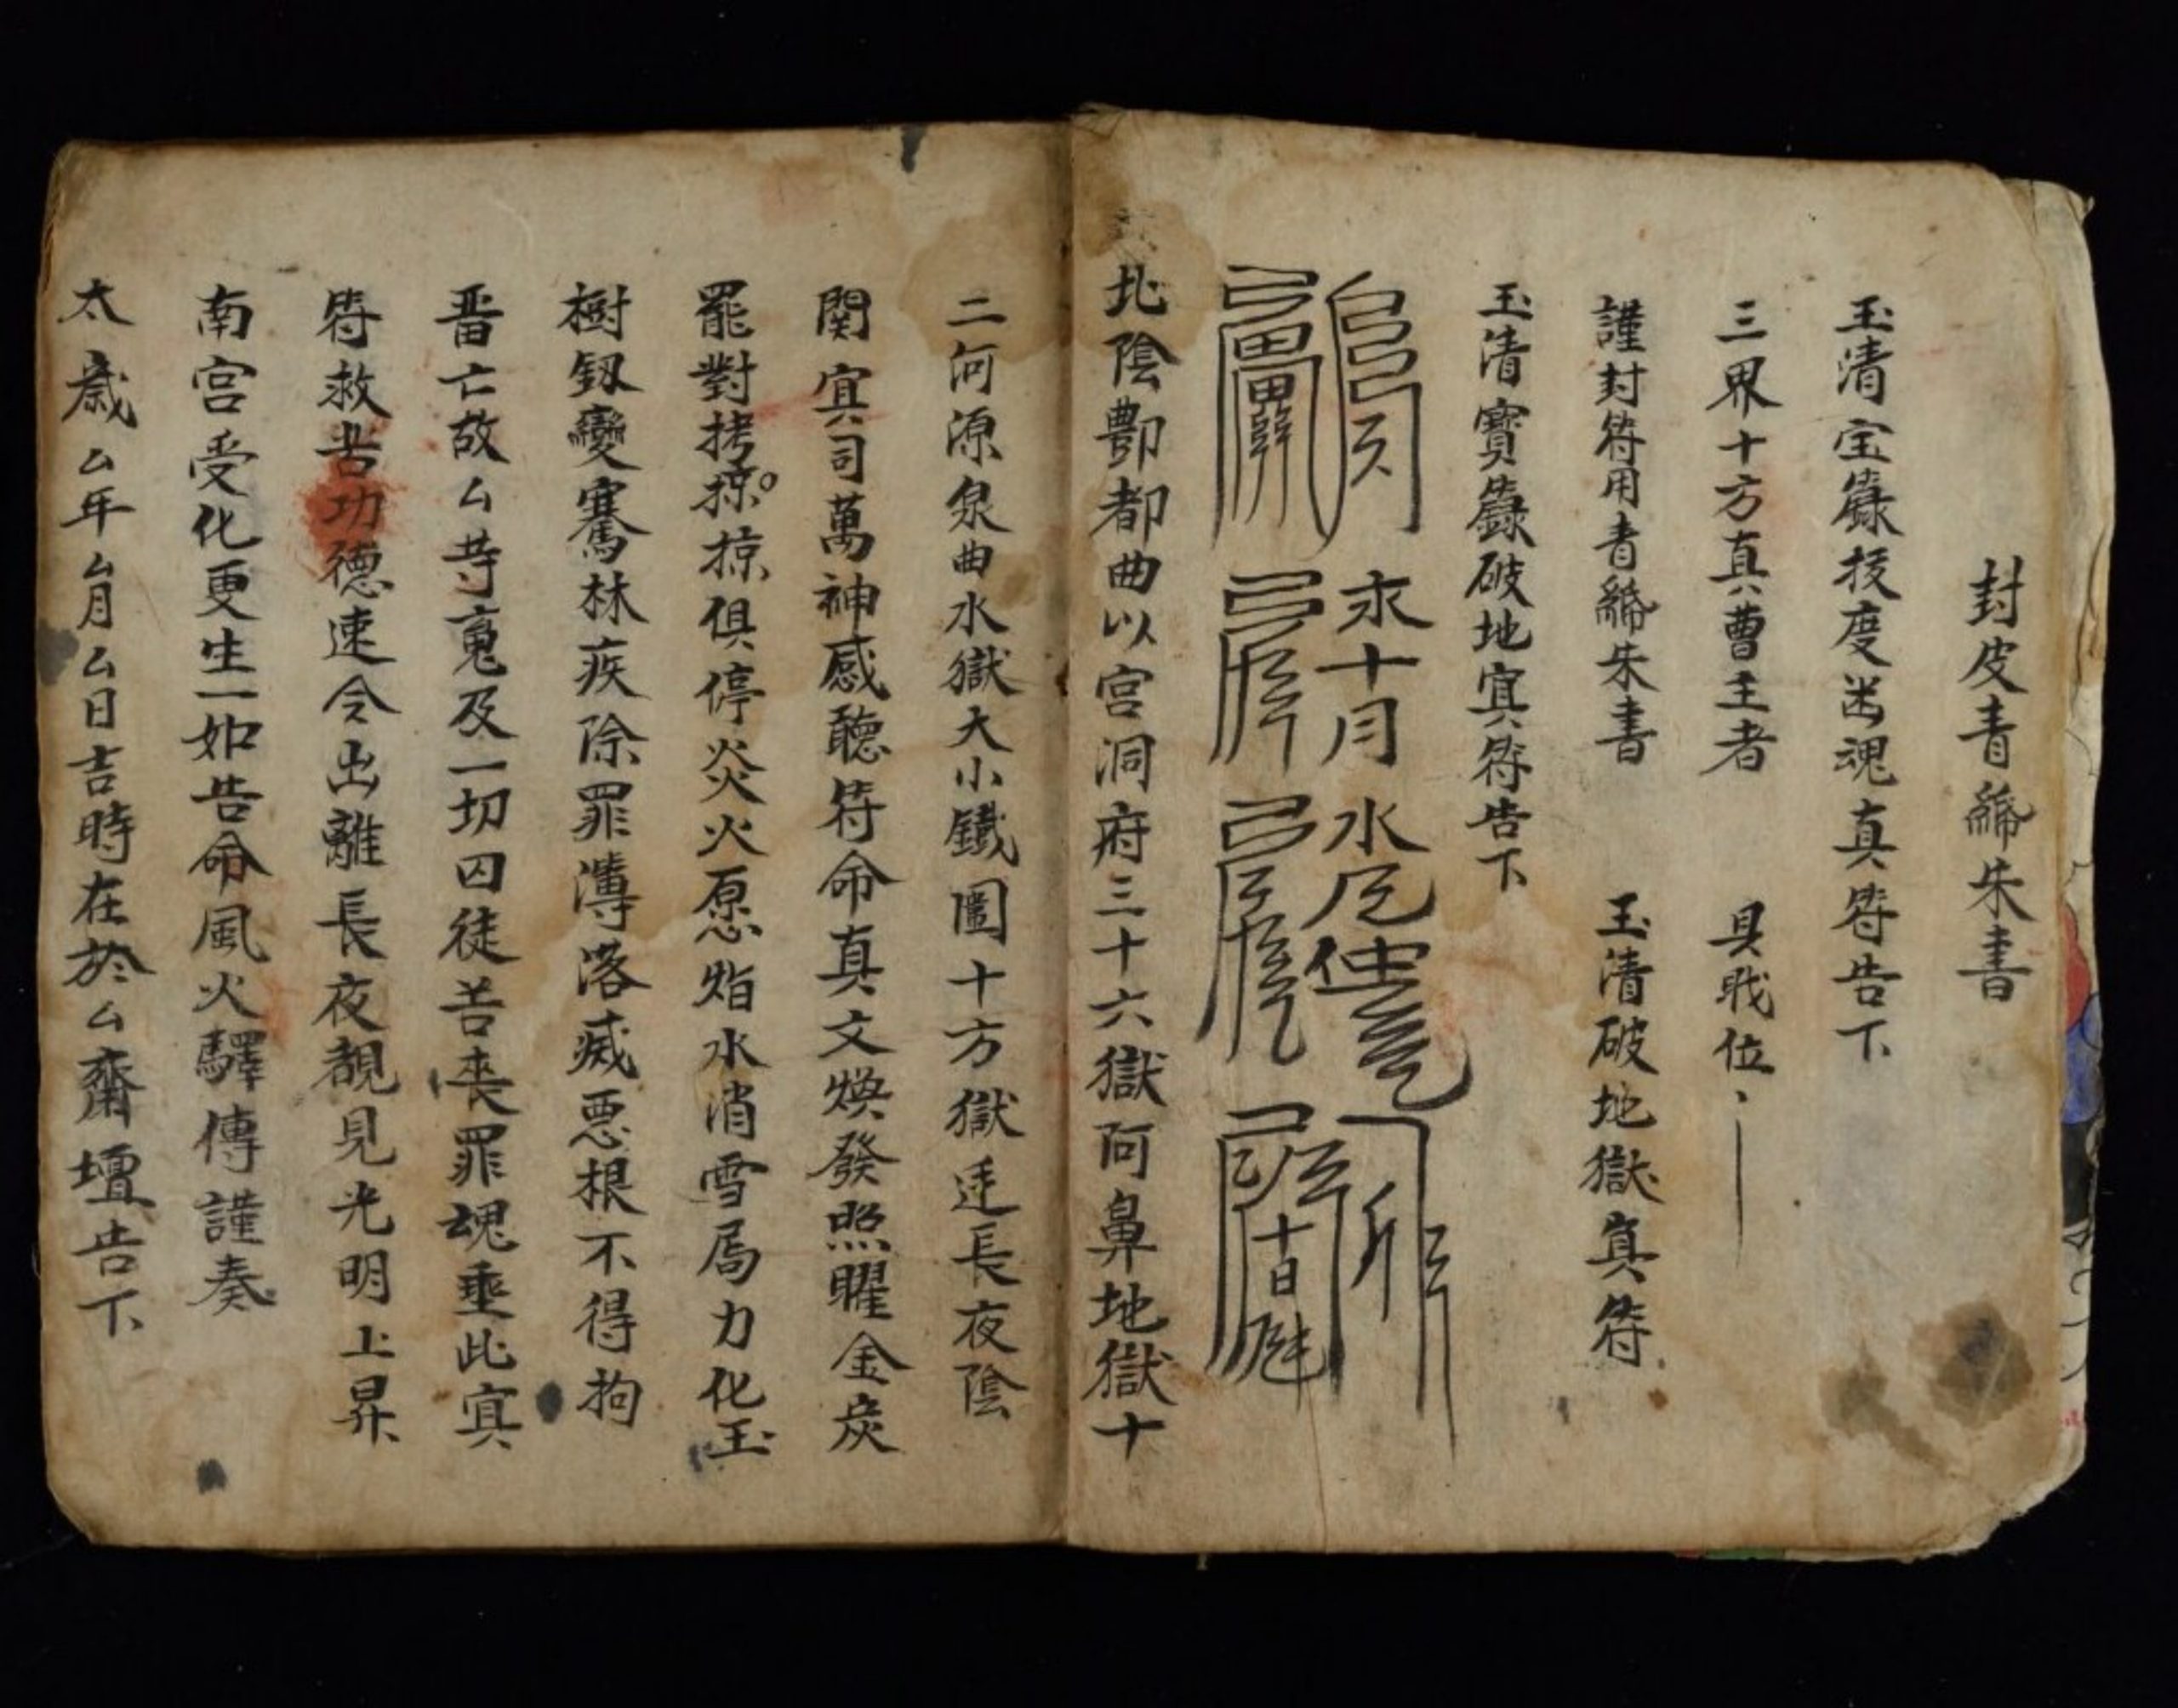 封皮青縧朱書
玉清宝籙授度出魂真符告下
三界十方真曹主者　具戝位
謹封符用青縧朱書　玉清破地獄真符
玉清寶籙破地冥符告下
北陰酆都曲以宫洞府三十六獄阿鼻地獄十
二何源泉曲水獄大小鐵圍十方獄廷長夜陰
関冥司萬神感聽符命真文煥發照曜金炭
罷對拷掠掠俱停炎火愿焰水消雪局力化玉
樹釼變騫林疾除罪簿落烕悪根不得拘
晋亡故厶等䰟及一切囚徒苦丧罪魂乗此冥
符救苦功德速令出離長夜覩見光明上昇
南宫受化更生一如告命風火驛傳謹奏
太歲厶年厶月厶日吉時在於厶齋壇告下